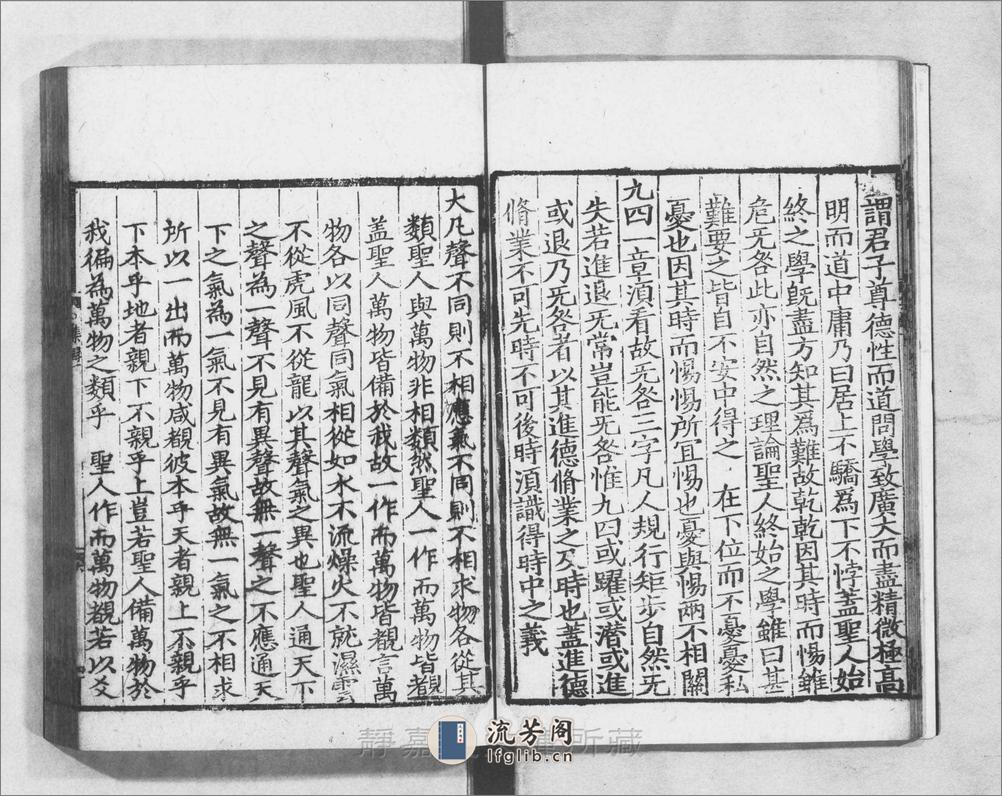 謂君子尊德性而道問學致廣大而盡精微極高
明而道中庸乃曰居上不驕爲下不悖蓋聖人始
終之學旣盡方知其爲難故乾乾因其時而惕雖
危旡咎此亦自然之理論聖人終始之學雖曰甚
難要之皆自不安中得之 在下位而不憂憂私
憂也因其時而惕惕所宜惕也憂與惕兩不相關
九四一章湏看故旡咎三字凡人規行矩步自然旡
失若進退旡常豈能旡咎惟九四或躍或潜或進
或退乃旡咎者以其進德脩業之及時也蓋進德
脩業不可先時不可後時湏識得時中之義
大凡聲不同則不相應氣不同則不相求物各從其
類聖人與萬物非相類然聖人一作而萬物皆覩者
盖聖人萬物皆備於我故一作而萬物皆覩言萬
物各以同聲同氣相從如水不流燥火不就濕雲
不從虎風不從龍以其聲氣之異也聖人通天下
之聲為一聲不見有異聲故無一聲之不應通天
下之氣為一氣不見有異氣故無一氣之不相求
所以一出而萬物咸覩彼本乎天者親上不親乎
下本乎地者親下不親乎上豈若聖人備萬物於
我徧為萬物之類乎 聖人作而萬物覩若以爻
靜嘉 所藏
流芳阁
lfglib.cn